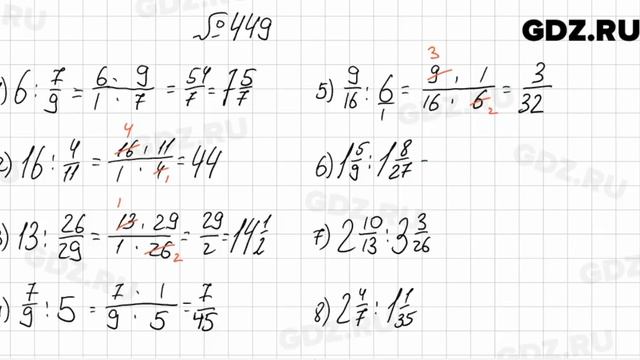 № 449
GDZ.RU
) 6 : 7/9 = 6 · 9 / 1 · 7 = 54/7 = 7 5/7
2) 16 : 4/11 = 16 · 11 / 1 · 4 = 44
3) 13 : 26/29 = 13 · 29 / 1 · 26 = 29/2 = 14 1/2
) 7/9 : 5 = 7 · 1 / 9 · 5 = 7/45
5) 9/16 : 6/1 = 9 · 1 / 16 · 6 = 3/32
6) 1 5/9 : 1 8/27 -
7) 2 10/13 : 3 3/26
8) 2 4/7 : 1 1/35